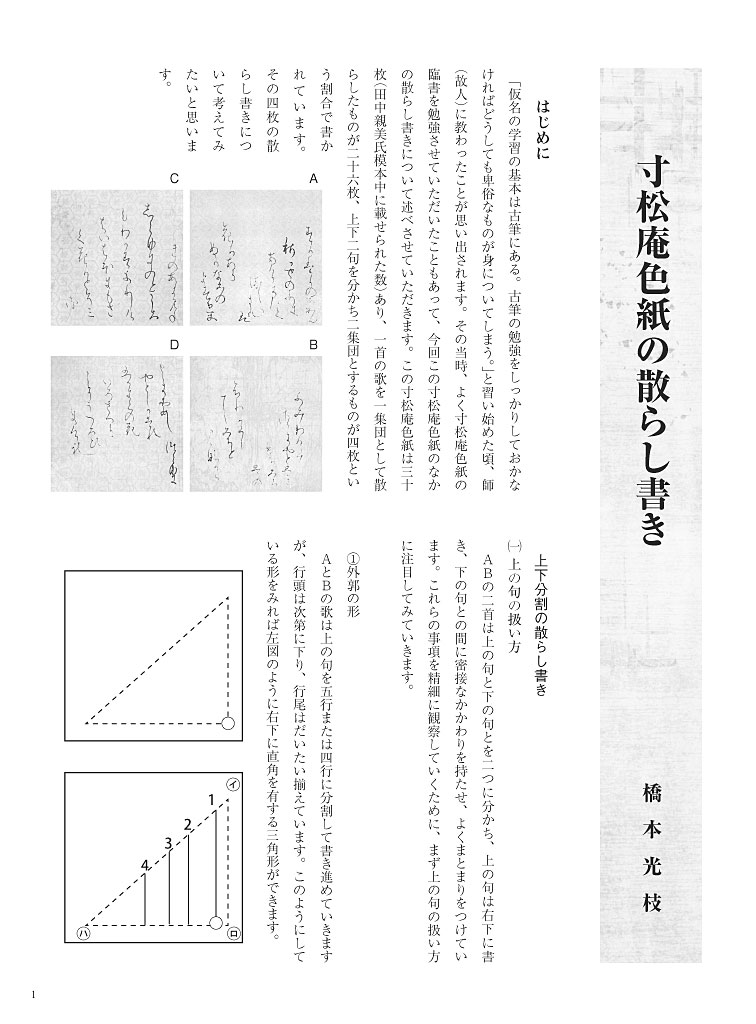 寸松庵色紙の散らし書き
橋本光枝
はじめに
「仮名の学習の基本は古筆にある。古筆の勉強をしっかりしておかな
ければどうしても卑俗なものが身についてしまう。」と習い始めた頃、師
(故人)に教わったことが思い出されます。その当時、よく寸松庵色紙の
臨書を勉強させていただいたこともあって、今回この寸松庵色紙のなか
の散らし書きについて述べさせていただきます。この寸松庵色紙は三十
枚(田中親美氏模本中に載せられた数)あり、一首の歌を一集団として散
らしたものが二十六枚、上下二句を分かち二集団とするものが四枚とい
う割合で書か
れています。
その四枚の散
らし書きにつ
いて考えてみ
たいと思いま
す。
A
B
C
D
上下分割の散らし書き
㈠ 上の句の扱い方
ABの二首は上の句と下の句とを二つに分かち、上の句は右下に書
き、下の句との間に密接なかかわりを持たせ、よくまとまりをつけてい
ます。これらの事項を精細に観察していくために、まず上の句の扱い方
に注目してみていきます。
①外郭の形
AとBの歌は上の句を五行または四行に分割して書き進めていきます
が、行頭は次第に下り、行尾はだいたい揃えています。このようにして
いる形をみれば左図のように右下に直角を有する三角形ができます。
イ
1
2
3
4
ロ
ハ
1